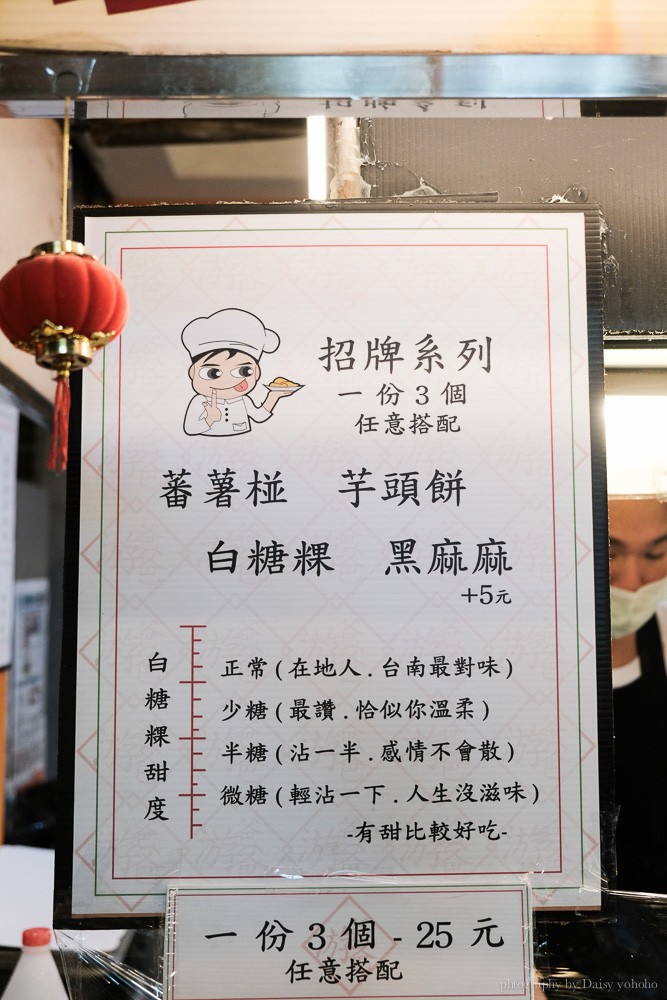 招牌系列
一份3個
任意搭配
蕃薯椪 芋頭餅
白糖粿 黑麻麻
+5元
白糖粿甜度
正常(在地人.台南最對味)
少糖(最讚.恰似你溫柔)
半糖(沾一半.感情不會散)
微糖(輕沾一下.人生沒滋味)
-有甜比較好吃-
一份3個-25元
任意搭配
photography by Daisy yohoho